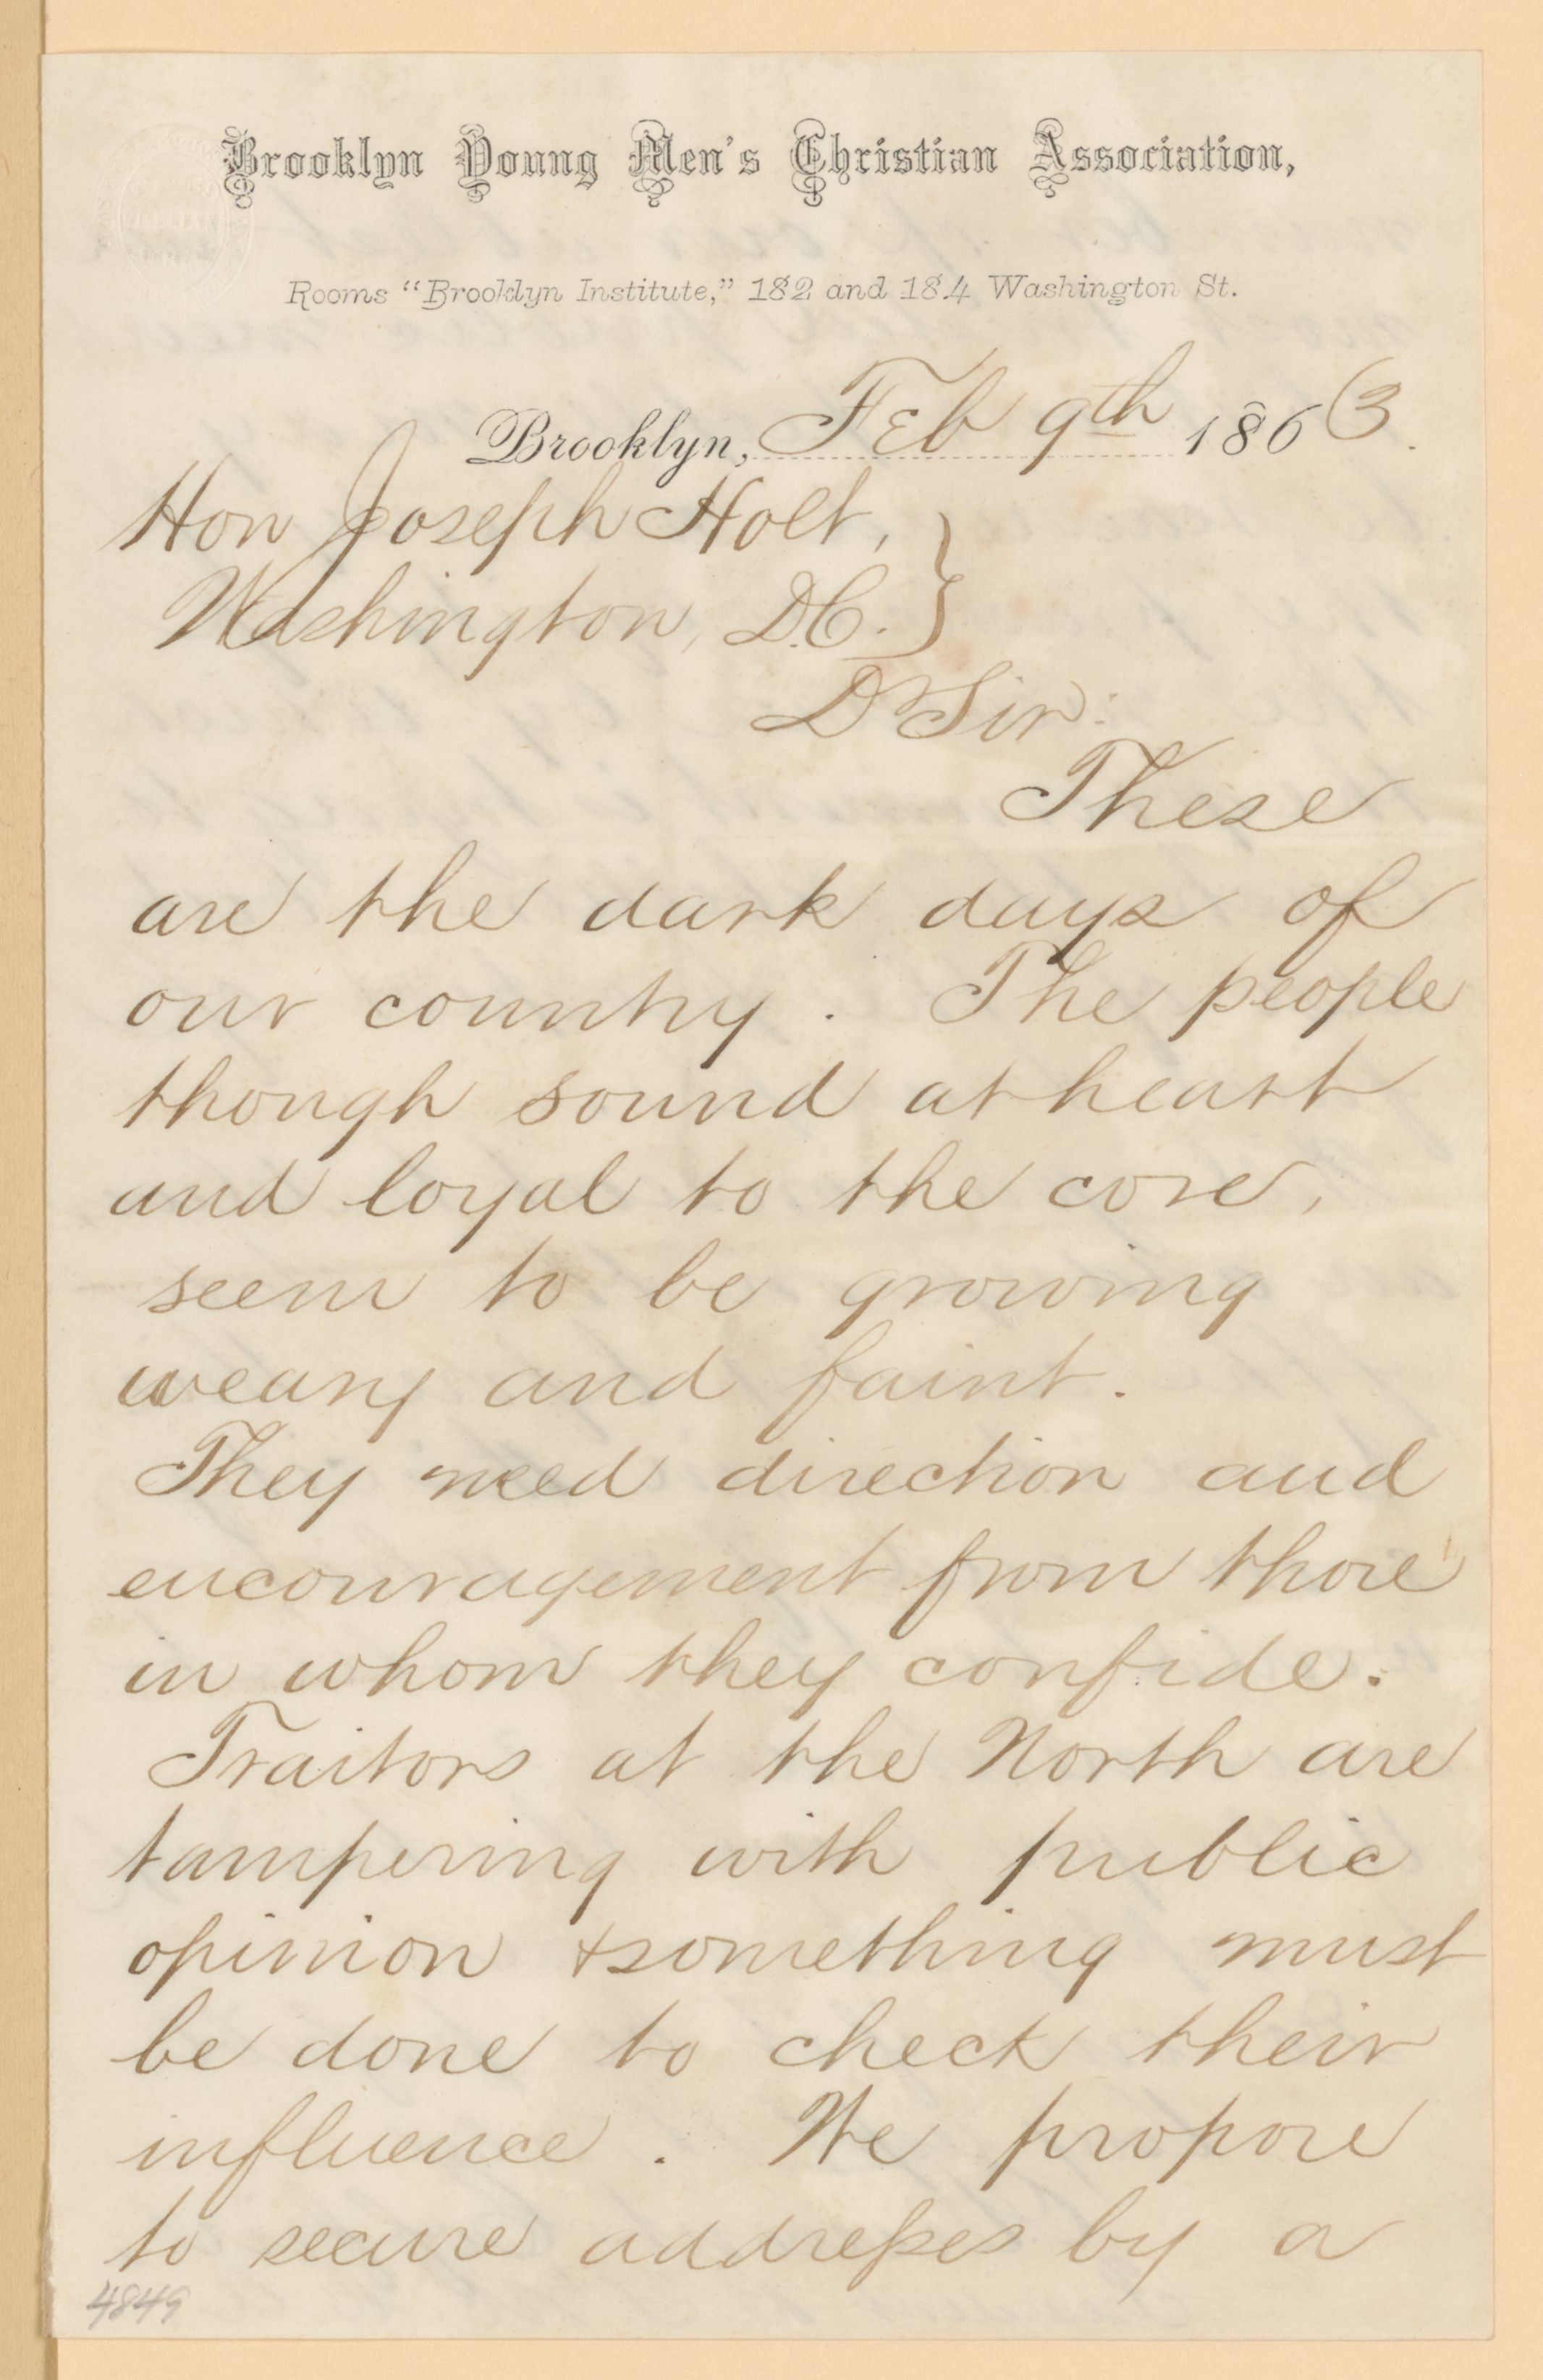 Brooklyn Young Men's Christian Association,
Rooms "Brooklyn Institute," 182 and 184 Washington St.
Brooklyn, Feb 9th 1863.
Hon Joseph Holt,
Washington, D.C.
D Sir:
These
are the dark days of
our country. The people
though sound at heart
and loyal to the core,
seem to be growing
weary and faint.
They need direction and
encouragement from those
in whom they confide.
Traitors at the North are
tampering with public
opinion & something must
be done to check their
influence. We propose
to secure addresses by a
4849